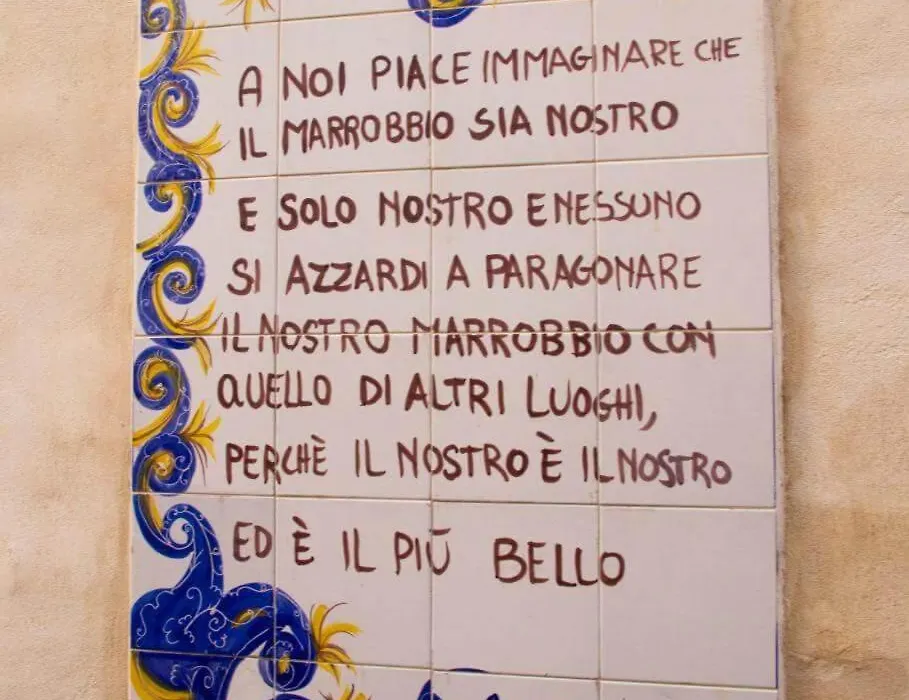 A NOI PIACE IMMAGINARE CHE
IL MARROBBIO SIA NOSTRO
E SOLO NOSTRO E NESSUNO
SI AZZARDI A PARAGONARE
IL NOSTRO MARROBBIO CON
QUELLO DI ALTRI LUOGHI,
PERCHÈ IL NOSTRO È IL NOSTRO
ED È IL PIÙ BELLO